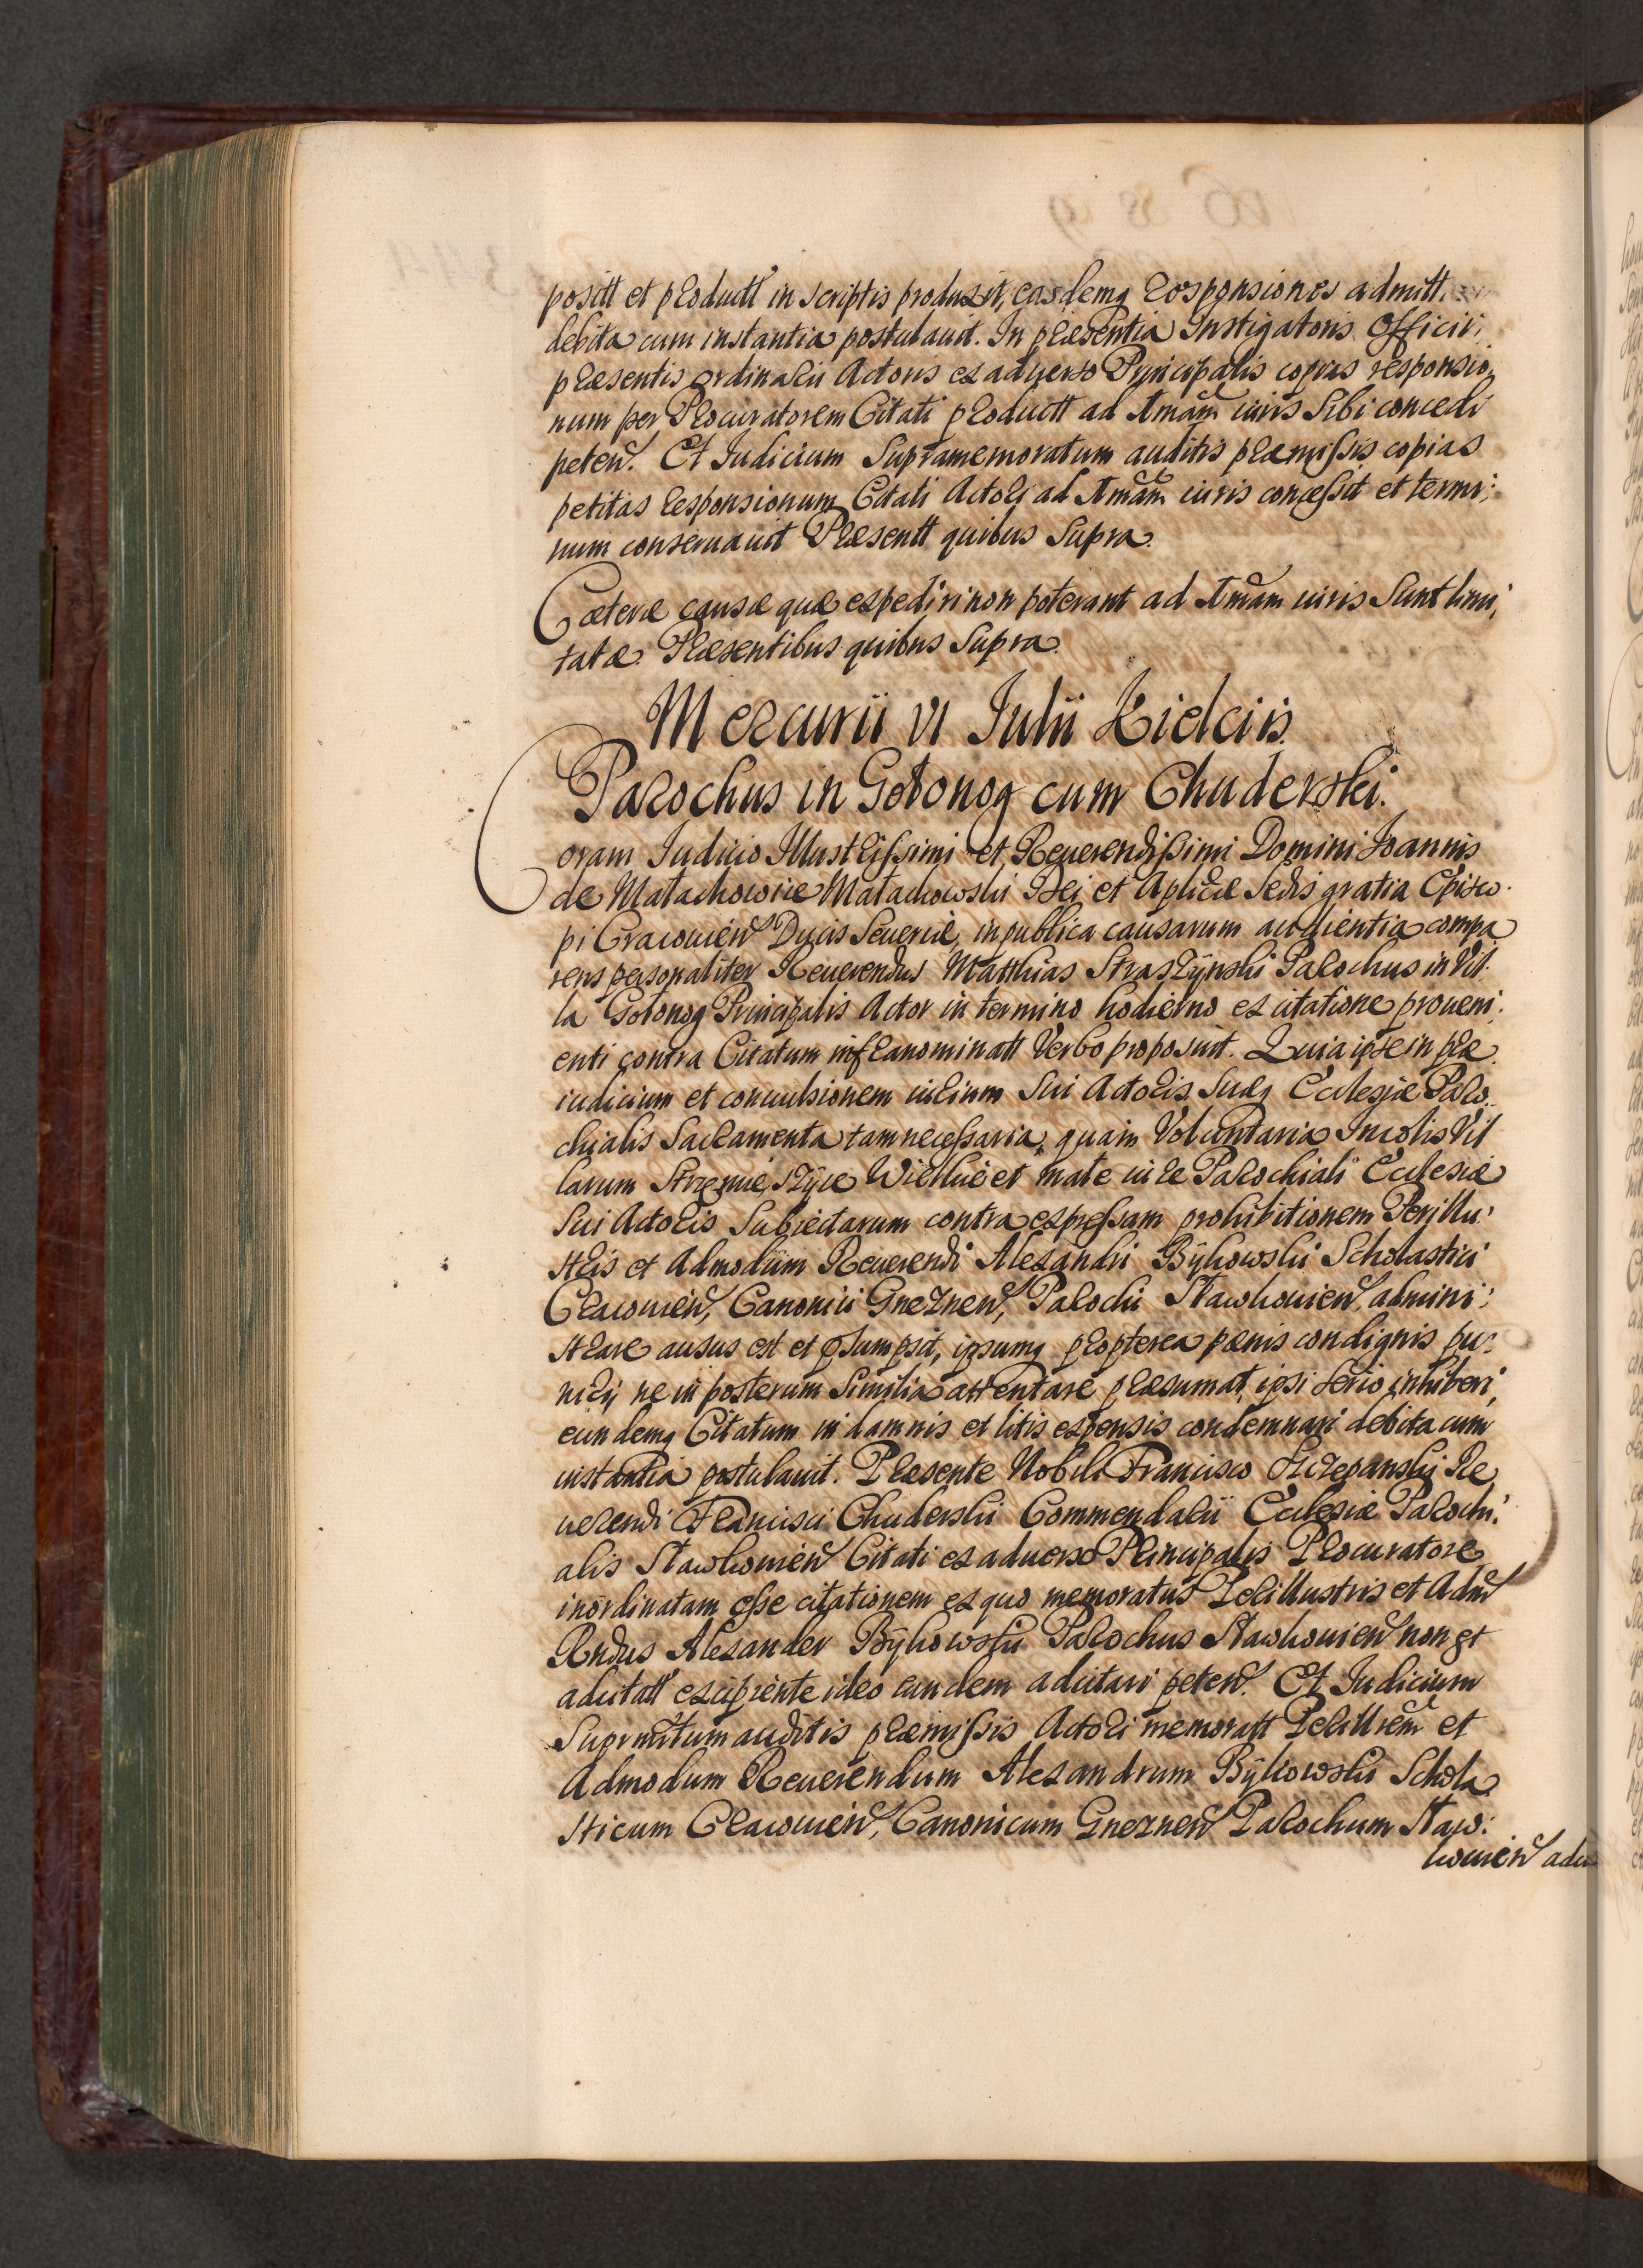 positt et productt in scriptis produxit, easdemq responsiones admitti
debita cum instantia postulauit. In præsentia Instigatoris Officii
præsentis ordinarii Actoris ex aduerso Principalis copias responsio,
num per Procuratorem Citati productt ad Amam iuris sibi concedi
peteñ. Et Iudicium Supramemoratum auditis præmissis copias
petitas responsionum Citati Actori ad Amam iuris concessit et termi:
num conseruauit Præsentt quibus Supra.
Cæteræ causæ quæ expediri non poterant ad Amam iuris Sunt limi,
tatæ. Præsentibus quibus Supra.
Mercurii VI Iulii Kielciis.
Parochus in Gołonog cum Chuderski.
Coram Iudicio Illustrissimi et Reuerendissimi Domini Ioannis
de Małachowice Małachowski Dei et Aplicæ Sedis gratia Episco
pi Cracouieñ Ducis Seueriæ, in publica causarum audientia compa
rens personaliter Reuerendus Matthias Straszÿnski Parochus in Vil
la Gołonog Principalis Actor in termino hodierno ex citatione proueni:
enti contra Citatum infranominatt Verbo proposuit. Quia ipse in præ
iudicium et conuulsionem iurium Sui Actoris, Suæq Ecclesiæ Paro
chialis Sacramenta tam necessaria, quam Voluntaria Incolis Vil
larum Strzemieszÿce Wielkie et małe iure Parochiali Ecclesiæ
Sui Actoris Subiectarum contra expressam prohibitionem Perillu:
stris et Admodum Reuerendi Alexandri Bÿkowski Scholastici
Cracouieñ, Canonici Gnezneñ, Parochi Sławkouieñ, admini:
strare ausus est et psumpsit, ipsumq propterea pænis condignis pu:
niri, ne in posterum Similia attentare præsumat, ipsi serio inhiberi,
eundemq Citatum in damnis et litis expensis condemnari debita cum
instantia postulauit. Præsente Nobili Francisco Szczepanski Re
uerendi Francisci Chuderski Commendarii Ecclesiæ Parochi:
alis Sławkouieñ Citati ex aduerso Principalis Procuratore
inordinatam esse citationem ex quo memoratus Perillustris et Adm
Rndus Alexander Bÿkowski Parochus Sławkouieñ non est
adcitatt excipiente ideo eundem adcitari peteñ. Et Iudicium
Suprmtum auditis præmissis Actori memoratt Perillrem et
Admodum Reuerendum Alexandrum Bÿkowski Schola
sticum Cracouieñ, Canonicum Gnezneñ Parochum Sław:
kouieñ adci